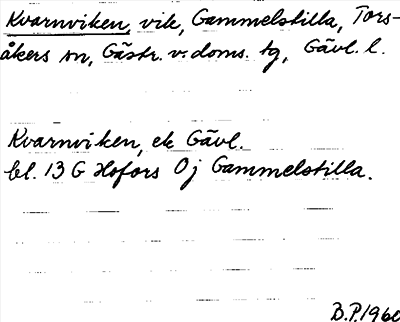 Kvarnviken, vik, Gammelstilla, Tors-
åkers sn, Gästr. v. doms. tg, Gävl. l.
Kvarnviken, ek Gävl.
bl. 13 G Hofors 0j Gammelstilla.
B.P. 1960